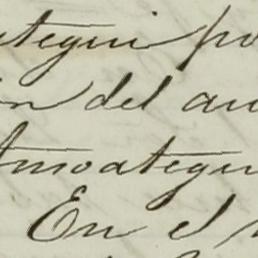 ategui po
on del au
Amoategui
En el